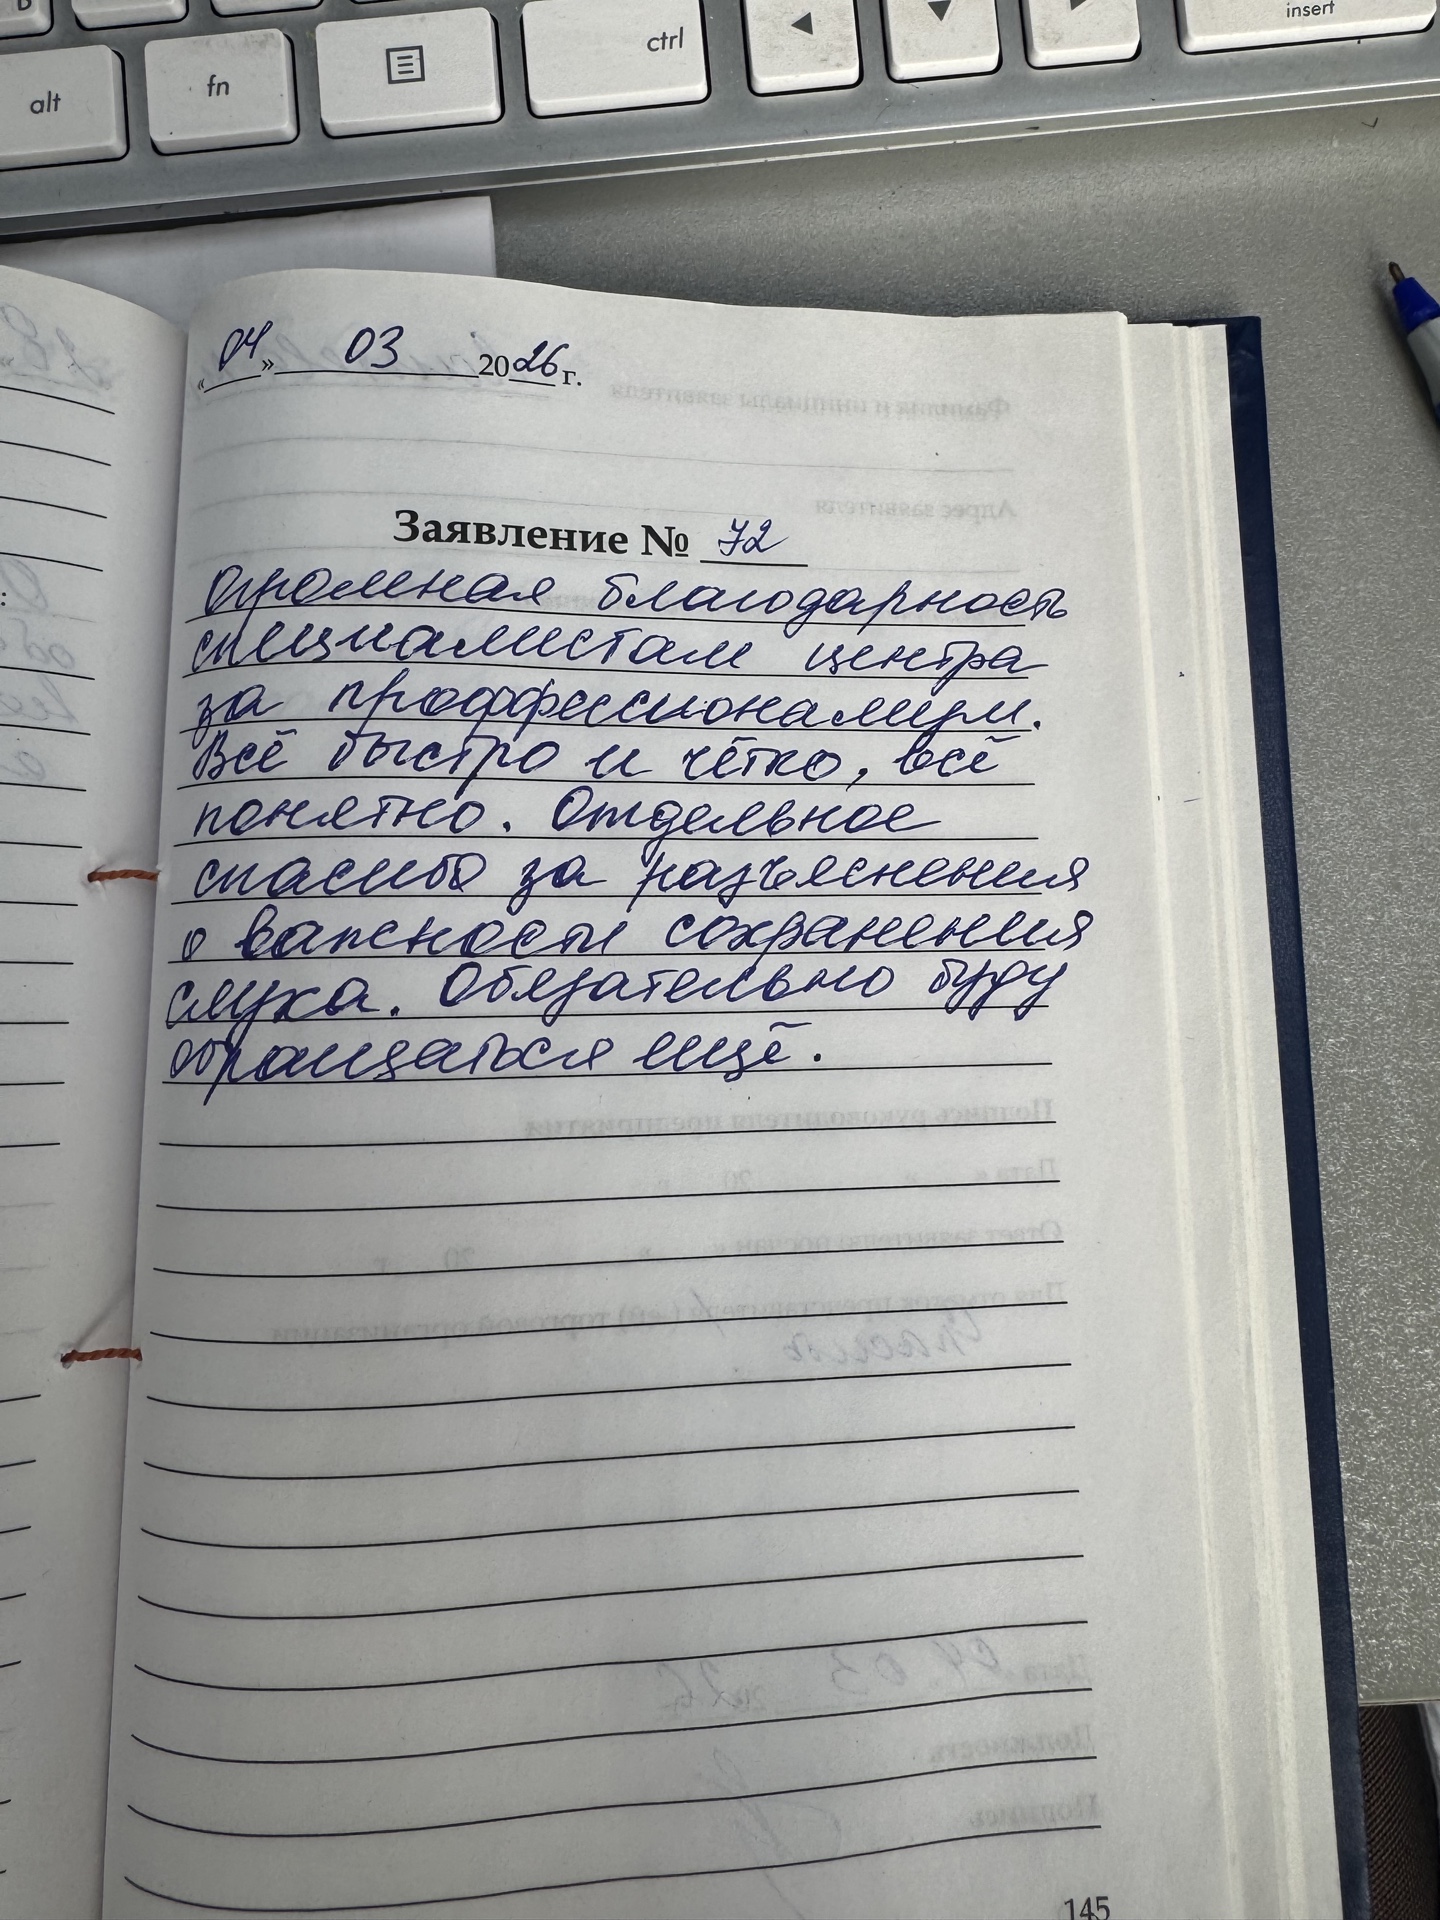 alt
fn
ctrl
insert
«04» 03 2026 г.
Заявление № 72
Огромная благодарность
специалистам центра
за проффессионализм.
Всё быстро и чётко, всё
понятно. Отдельное
спасибо за разъяснения
о важности сохранения
слуха. Обязательно буду
обращаться ещё.
145